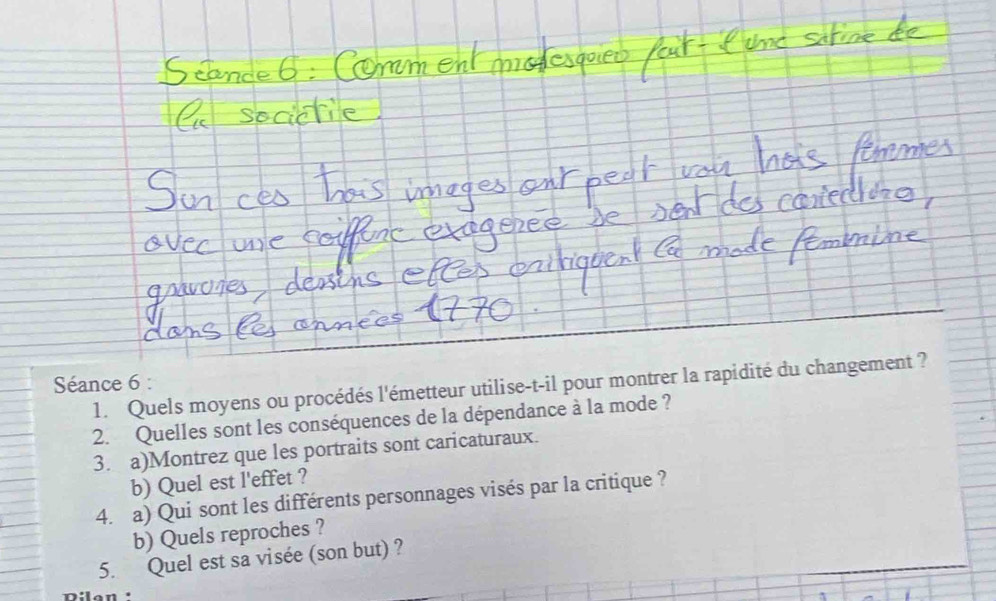 Séance 6 : Comment montesquieu fait-il une satire de
la societie
Sur ces trois images ont peut voir trois femmes
avec une coiffure exagerée se sont des
gravures, dessins elles critiquent la mode feminine
dans les années 1770.
Séance 6 :
1. Quels moyens ou procédés l'émetteur utilise-t-il pour montrer la rapidité du changement ?
2. Quelles sont les conséquences de la dépendance à la mode ?
3. a)Montrez que les portraits sont caricaturaux.
b) Quel est l'effet ?
4. a) Qui sont les différents personnages visés par la critique ?
b) Quels reproches ?
5. Quel est sa visée (son but) ?
Bilan :